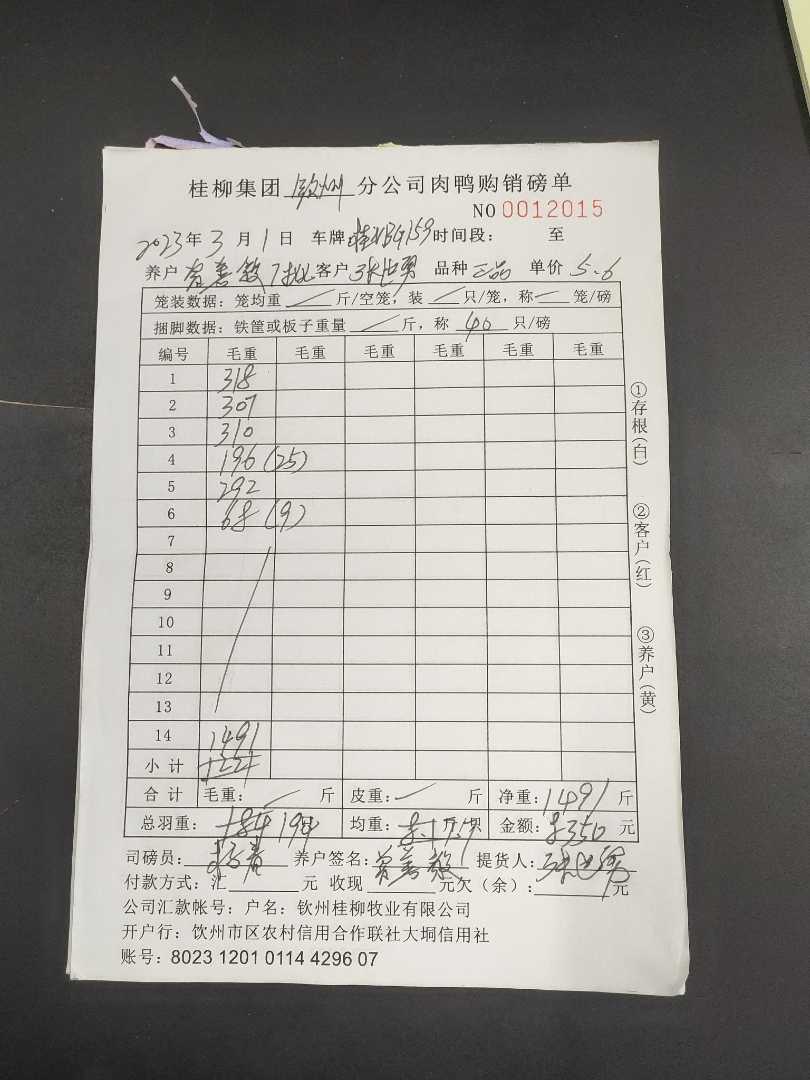 桂柳集团 钦州 分公司肉鸭购销磅单
NO 0012015
2023年3月1日 车牌 桂 159 时间段: 至
养户 曾善敏 7批 客户 张世勇 品种 三品 单价 5.6
笼装数据: 笼均重 / 斤/空笼, 装 / 只/笼, 称 / 笼/磅
捆脚数据: 铁筐或板子重量 / 斤, 称 40 只/磅
编号 毛重 毛重 毛重 毛重 毛重 毛重
1 318
2 307
3 310
4 196 (25)
5 292
6 68 (9)
7
8
9
10
11
12
13
14 1491
小计
合计 毛重: / 斤 皮重: / 斤 净重: 1491 斤
总羽重: 184 194 均重: 7.7 金额: 8350 元
司磅员: 养户签名: 曾善敏 提货人: 张世勇
付款方式: 汇 元 收现 元欠(余): 元
公司汇款帐号: 户名: 钦州桂柳牧业有限公司
开户行: 钦州市区农村信用合作联社大垌信用社
账号: 8023 1201 0114 4296 07
①存根(白)
②客户(红)
③养户(黄)